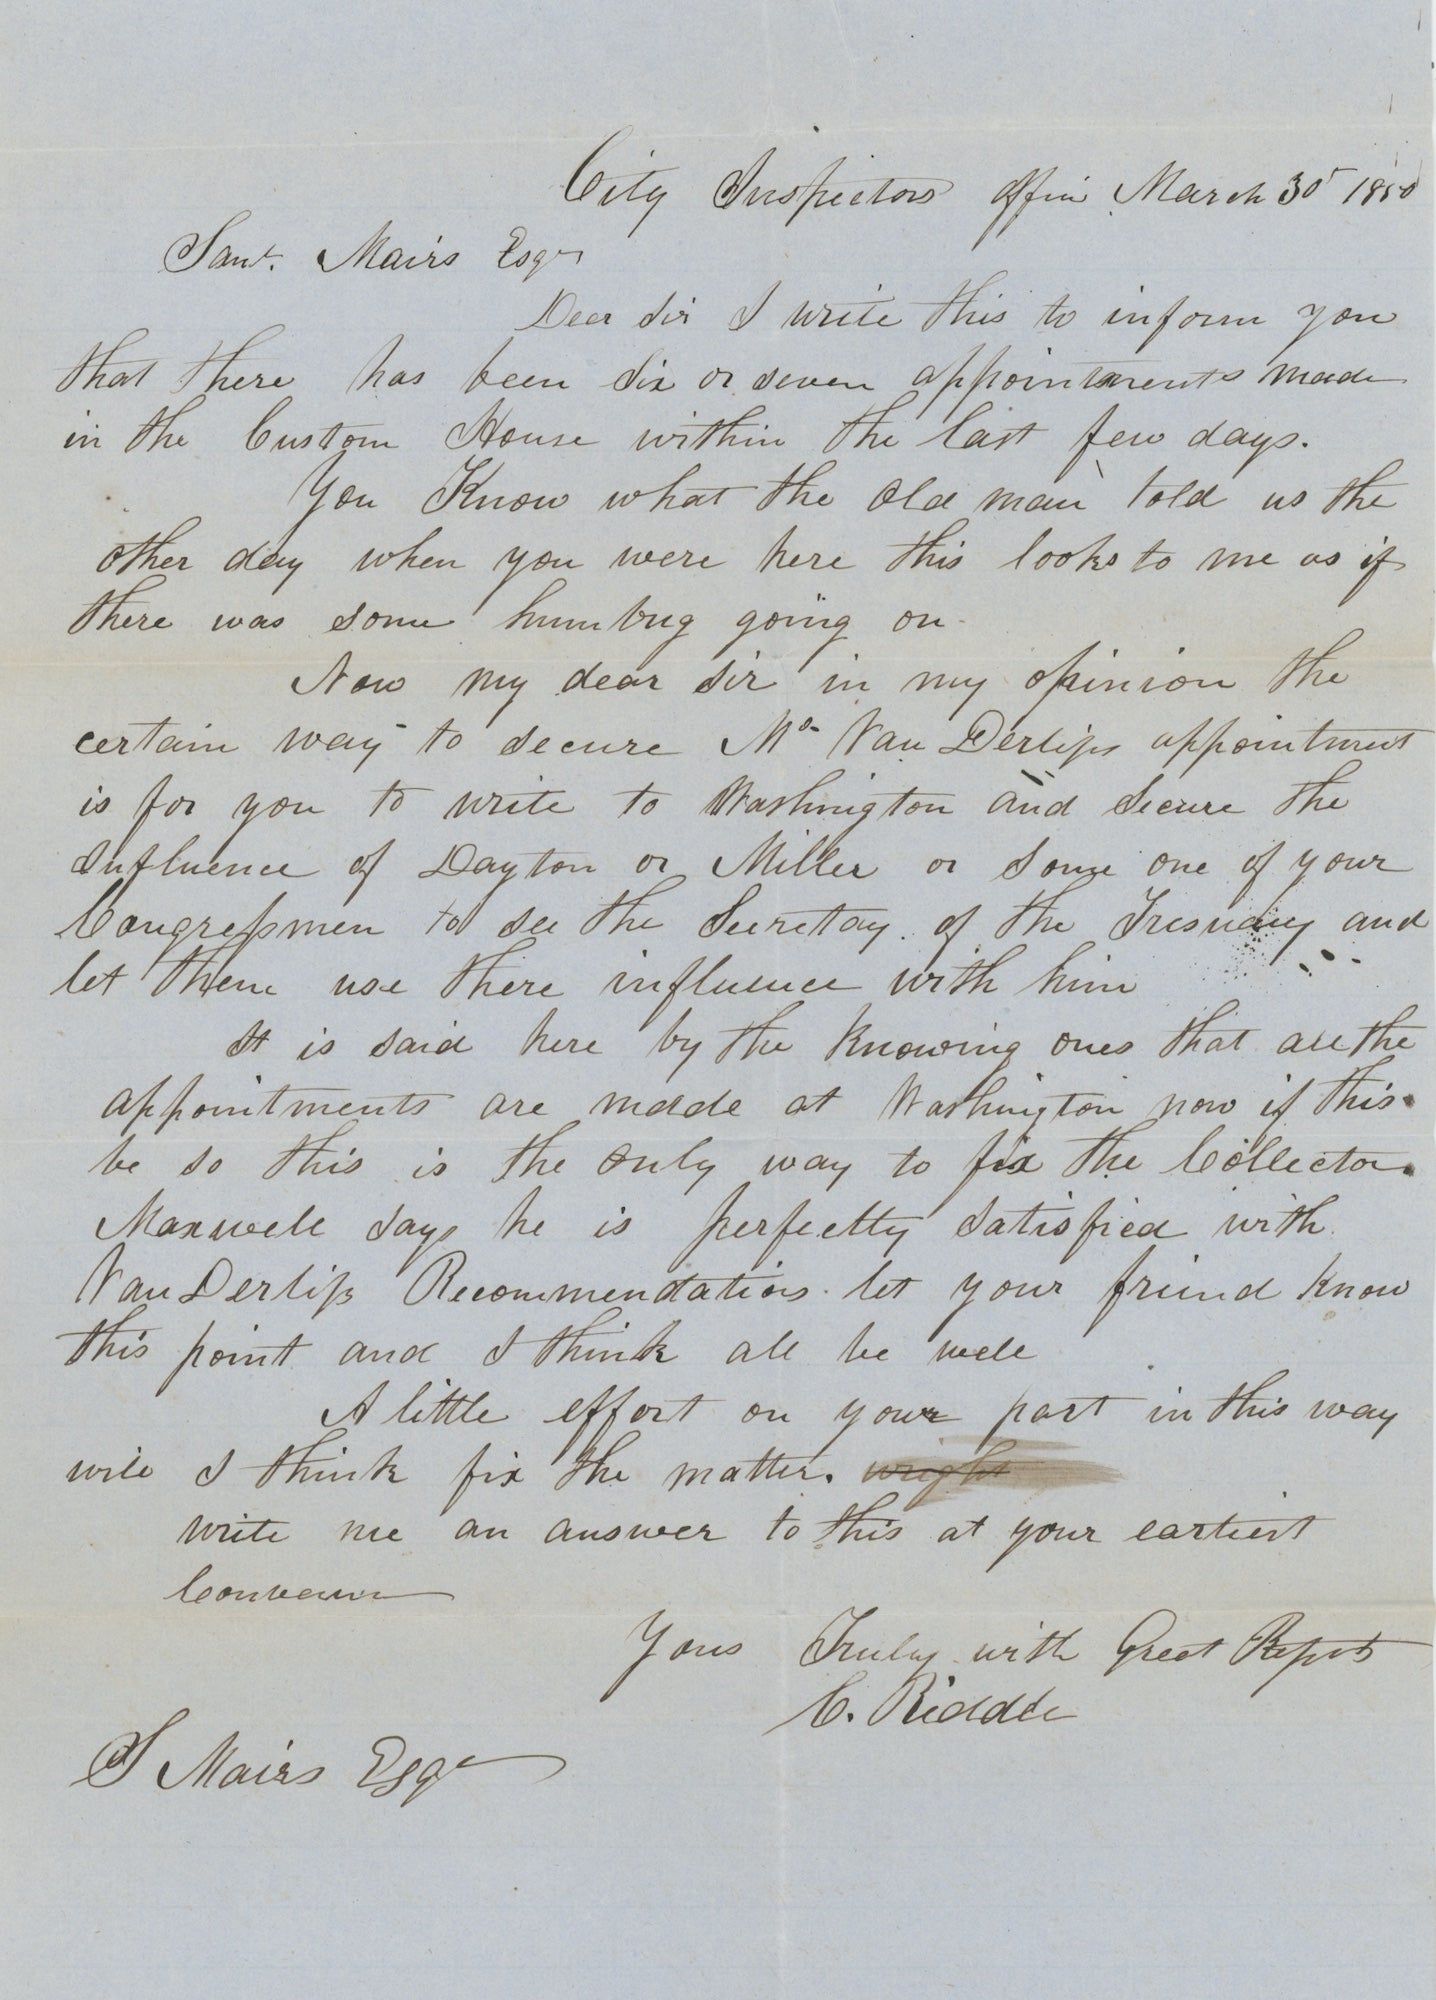 City Inspectors offic March 30 1850
Saml. Mairs Esqr
Dear Sir I write this to inform you
that there has been six or seven appointments made
in the Custom House within the last few days.
You Know what the old man told us the
other day when you were here this looks to me as if
there was some humbug going on
Now my dear sir in my opinion the
certain way to secure Mr Van Derlips appointment
is for you to write to Washington and secure the
Influence of Dayton or Miller or some one of your
Congressmen to see the Secretay of the Tresuery and
let them use there influence with him
It is said here by the knowing ones that all the
appointments are made at Washington now if this
be so this is the only way to fix the Collector.
Maxwell says he is perfectly satisfied with
Van Derlips Recommendations let your friend know
this point and I think all be well
A little effort on your part in this way
will I think fix the matter. wright
write me an answer to this at your earliest
Yous Truly with Great Respets
C. Riddle
S Mairs Esqr